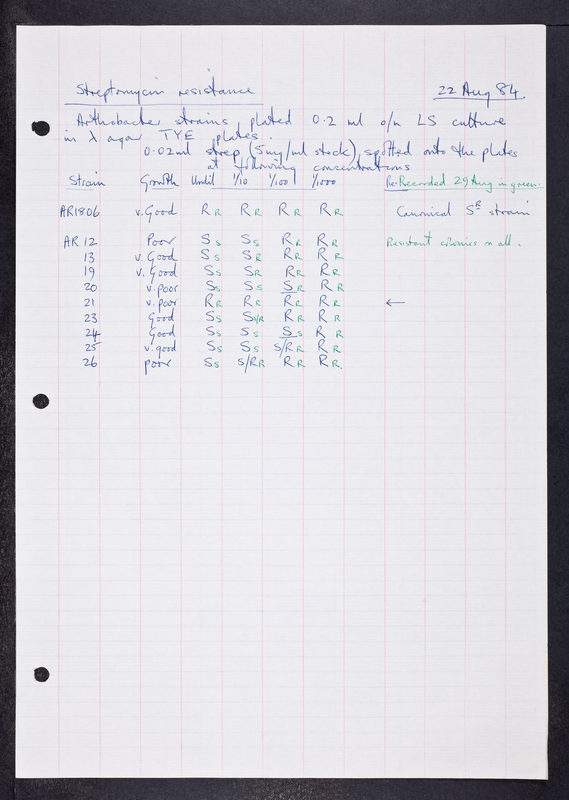 Streptomycin resistance 22 Aug 84.
Arthrobacter strains, plated 0.2 ml o/n LS culture
in λ agar TYE plates.
0.02ml strep (5mg/ml stock) spotted onto the plates
at following concentrations
Strain Growth Undil 1/10 1/100 1/1000 Re-Recorded 29 Aug in green.
AR1806 v.Good R R R R R R R R Canonical Sᴿ strain
AR 12 Poor S S S S R R R R Resistant colonies in all.
13 v. Good S S S R R R R R
19 v. Good S S S R R R R R
20 v.poor S S S S S R R R
21 v.poor R R R R R R R R ←
23 Good S S S S/R R R R R
24 Good S S S S S S R R
25 v.good S S S S S/R R R R
26 poor S S S/R R R R R R